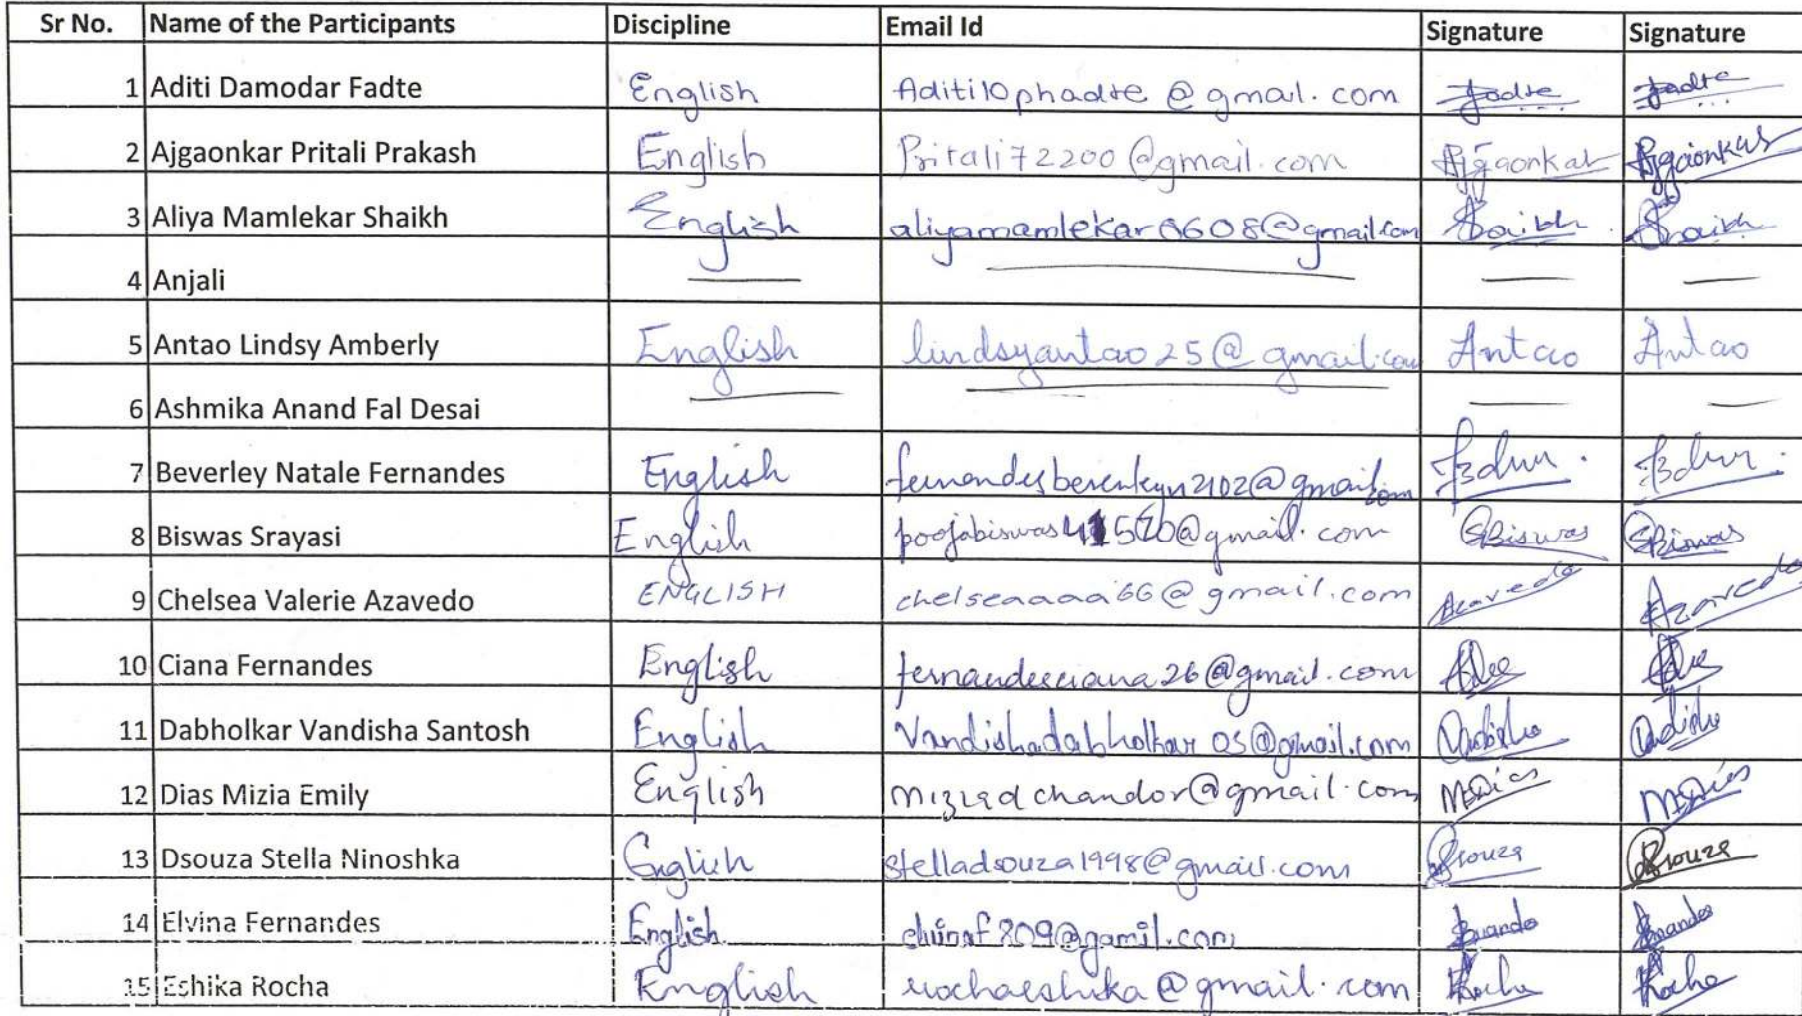 Sr No. Name of the Participants Discipline Email Id Signature Signature
1 Aditi Damodar Fadte English Aditi10phadte@gmail.com Fadte Fadte
2 Ajgaonkar Pritali Prakash English Pritali72200@gmail.com Ajgaonkar Ajgaonkar
3 Aliya Mamlekar Shaikh English aliyamamlekar0608@gmail.com Shaikh Shaikh
4 Anjali
5 Antao Lindsy Amberly English lindsyantao25@gmail.com Antao Antao
6 Ashmika Anand Fal Desai
7 Beverley Natale Fernandes English
8 Biswas Srayasi English SBiswas SBiswas
9 Chelsea Valerie Azavedo ENGLISH chelseaaaa66@gmail.com Azavedo Azavedo
10 Ciana Fernandes English fernandesciana26@gmail.com
11 Dabholkar Vandisha Santosh English Vandishadabholkar05@gmail.com
12 Dias Mizia Emily English miziadchandor@gmail.com MDias MDias
13 Dsouza Stella Ninoshka English stelladsouza1998@gmail.com Dsouza Dsouza
14 Elvina Fernandes English
15 Eshika Rocha English rochaeshika@gmail.com Rocha Rocha